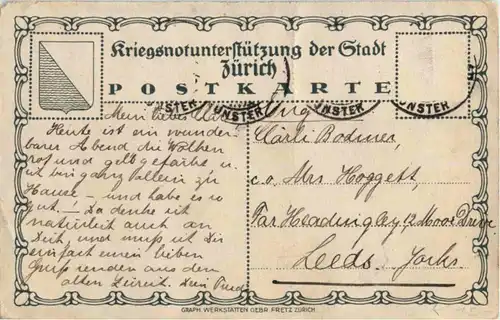 Kriegsnotunterstützung der Stadt
Zürich
POSTKARTE
Mein liebes
Heute ist ein wunder-
barer Abend die Wolken
rot und gelb gefärbt u.
ich bin ganz allein zu
Hause - und habe es so
gut! - Da denke ich
natürlich auch an
Dich, und muss ich Dir
einfach einen lieben
Gruss senden aus den
alten Zürich. Dein
Clärli Bodmer,
c.o. Mrs Hoggett,
Far Headingley, 12 Moor Drive
Leeds. Yorks
MÜNSTER
GRAPH. WERKSTÄTTEN GEBR. FRETZ ZÜRICH